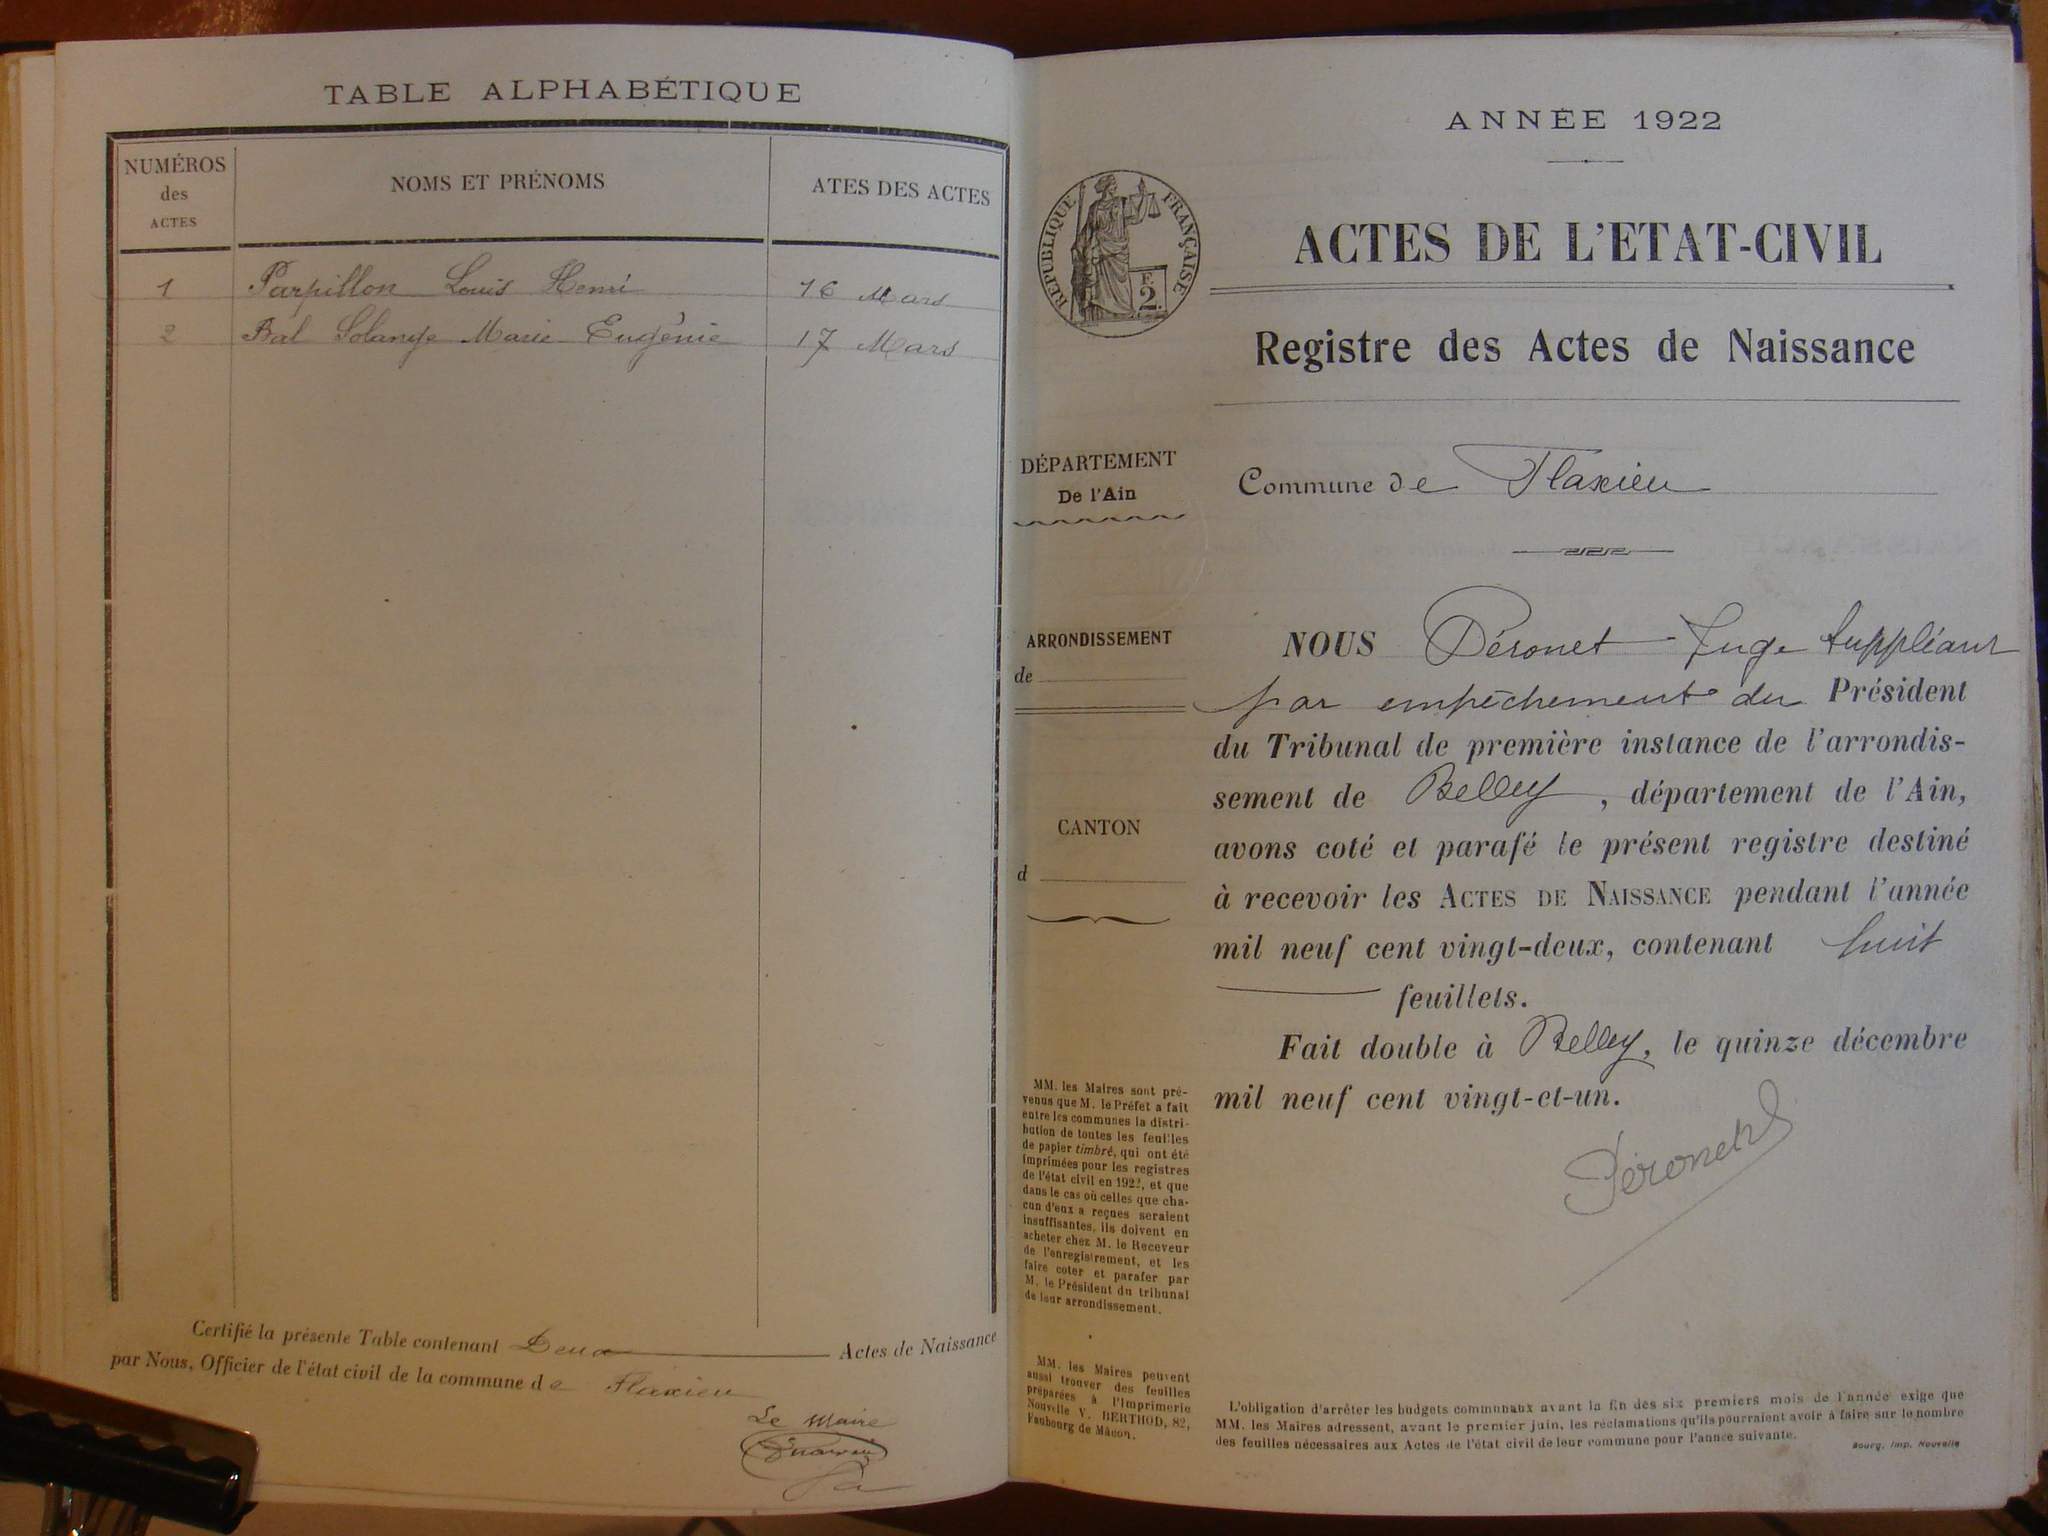 TABLE ALPHABÉTIQUE
NUMÉROS
des
ACTES
NOMS ET PRÉNOMS
ATES DES ACTES
1 Parpillon Louis Henri 16 Mars
2 Bal Solange Marie Eugénie 17 Mars
Certifié la présente Table contenant Deux Actes de Naissance
par Nous, Officier de l'état civil de la commune de Flaxieu
Le Maire
ANNÉE 1922
RÉPUBLIQUE FRANÇAISE
F.
2
ACTES DE L'ETAT-CIVIL
Registre des Actes de Naissance
DÉPARTEMENT
De l'Ain
Commune de Flaxieu
ARRONDISSEMENT
de
CANTON
d
NOUS Péronet Juge suppléant
par empêchement du Président
du Tribunal de première instance de l'arrondis-
sement de Belley, département de l'Ain,
avons coté et parafé le présent registre destiné
à recevoir les ACTES DE NAISSANCE pendant l'année
mil neuf cent vingt-deux, contenant huit
feuillets.
Fait double à Belley, le quinze décembre
mil neuf cent vingt-et-un.
Péronet
MM. les Maires sont pré-
venus que M. le Préfet a fait
entre les communes la distri-
bution de toutes les feuilles
de papier timbré, qui ont été
imprimées pour les registres
de l'état civil en 1922, et que
dans le cas où celles que cha-
cun d'eux a reçues seraient
insuffisantes, ils doivent en
acheter chez M. le Receveur
de l'enregistrement, et les
faire coter et parafer par
M. le Président du tribunal
de leur arrondissement.
MM. les Maires peuvent
aussi trouver des feuilles
préparées à l'Imprimerie
Nouvelle V. BERTHOD, 82,
Faubourg de Mâcon.
L'obligation d'arrêter les budgets communaux avant la fin des six premiers mois de l'année exige que
MM. les Maires adressent, avant le premier juin, les réclamations qu'ils pourraient avoir à faire sur le nombre
des feuilles nécessaires aux Actes de l'état civil de leur commune pour l'année suivante.
Bourg, Imp. Nouvelle